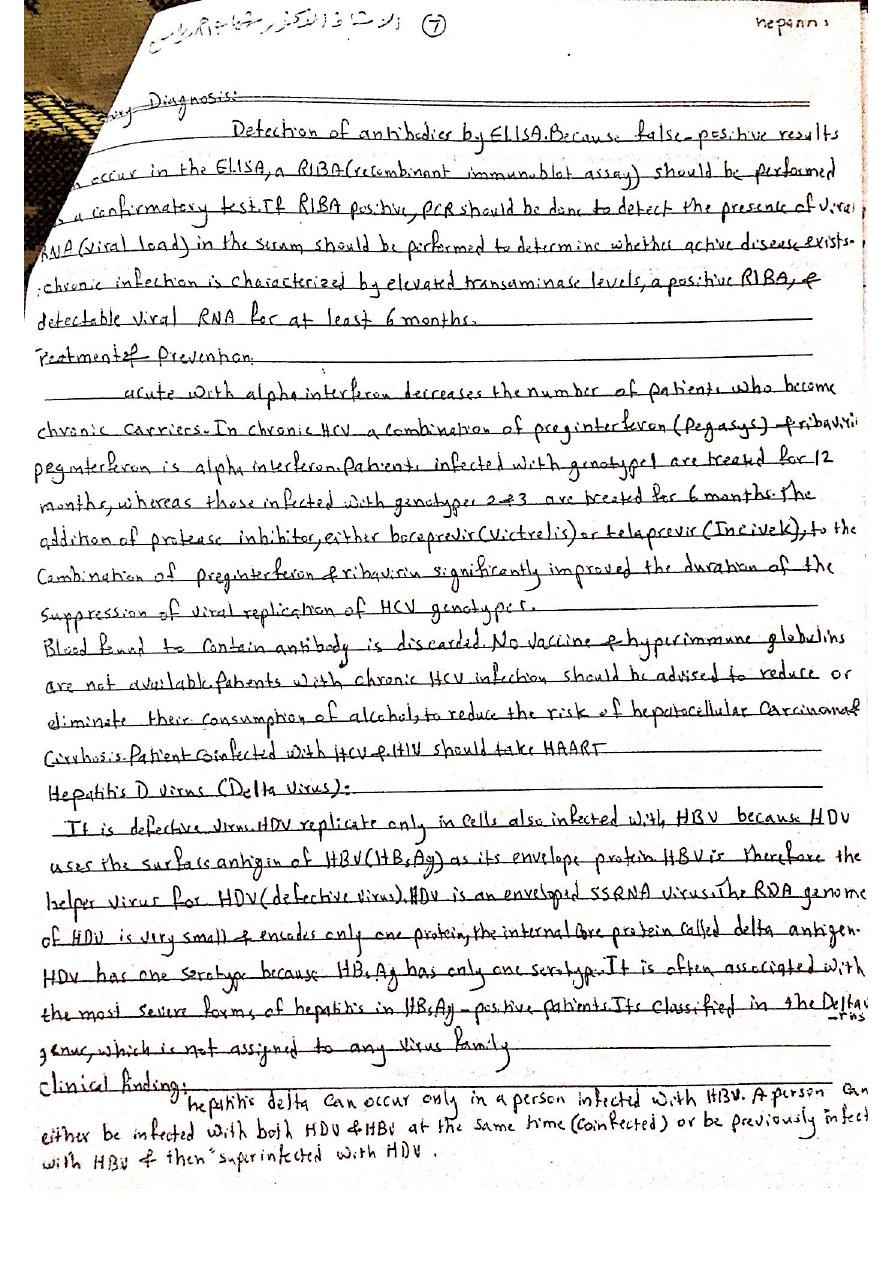 الاستاذ الدكتور شهاب احمد ⑦ hepatitis
Diagnosis:
Detection of antibodies by ELISA. Because false-positive results
occur in the ELISA, a RIBA (recombinant immunoblot assay) should be performed
a confirmatory test. If RIBA positive, PCR should be done to detect the presence of viral
RNA (viral load) in the serum should be performed to determine whether active disease exists.
chronic infection is characterized by elevated transaminase levels, a positive RIBA, &
detectable viral RNA for at least 6 months.
Treatment & Prevention:
acute with alpha interferon decreases the number of patients who become
chronic carriers. In chronic HCV a combination of preginterferon (Pegasys) & ribavirin
peginterferon is alpha interferon. Patients infected with genotype 1 are treated for 12
months, whereas those infected with genotypes 2 & 3 are treated for 6 months. The
addition of protease inhibitor, either boceprevir (Victrelis) or telaprevir (Incivek), to the
Combination of preginterferon & ribavirin significantly improved the duration of the
suppression of viral replication of HCV genotypes.
Blood found to contain antibody is discarded. No vaccine & hyperimmune globulins
are not available. Patients with chronic HCV infection should be advised to reduce or
eliminate their consumption of alcohol, to reduce the risk of hepatocellular Carcinoma &
Cirrhosis. Patient coinfected with HCV & HIV should take HAART
Hepatitis D virus (Delta virus):
It is defective virus. HDV replicate only in cells also infected with HBV because HDV
uses the surface antigin of HBV (HBsAg) as its envelope protein. HBV is therefore the
helper virus for HDV (defective virus). HDV is an enveloped SSRNA virus. The RNA genome
of HDV is very small & encodes only one protein, the internal core protein called delta antigen.
HDV has one serotype because HBsAg has only one serotype. It is often associated with
the most severe forms of hepatitis in HBsAg-positive patients. Its classified in the Deltavirus
genus, which is not assigned to any virus family
Clinical finding:
hepatitis delta can occur only in a person infected with HBV. A person can
either be infected with both HDV & HBV at the same time (coinfected) or be previously infect
with HBV & then "superinfected with HDV.